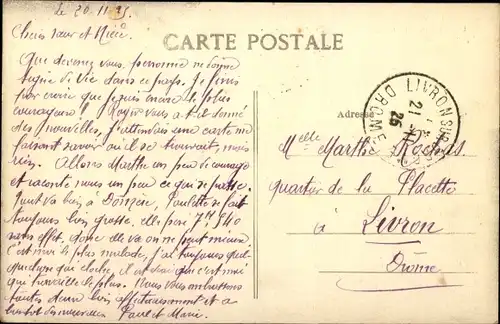 Le 20-11-25
Chers sœur et Nièce
CARTE POSTALE
Que devenez vous, personne ne donne
signe de vie dans ce pays. Je finis
par croire que je suis encore le plus
courageux! Roger vous a t-il donné
des nouvelles, j'attendais une carte me
faisant savoir où il se trouvait, mais
rien. Allons Marthe un peu de courage
et raconte nous un peu ce qui se passe.
Tout va bien à Paulette se fait
toujours bien grosse. elle pèse 7K940
sans effet. donc elle va on ne peut mieux.
C'est moi le plus malade, j'ai toujours quel-
quechose qui cloche, il est vrai que c'est moi
qui travaille le plus. Nous vous embrassons
toutes deux bien affectueusement et a
bientôt des nouvelles Paul et Marie.
Adresse
LIVRON
DROME
21 - XI
25
Melle Marthe
quartier de la Placette
à Livron
Drôme